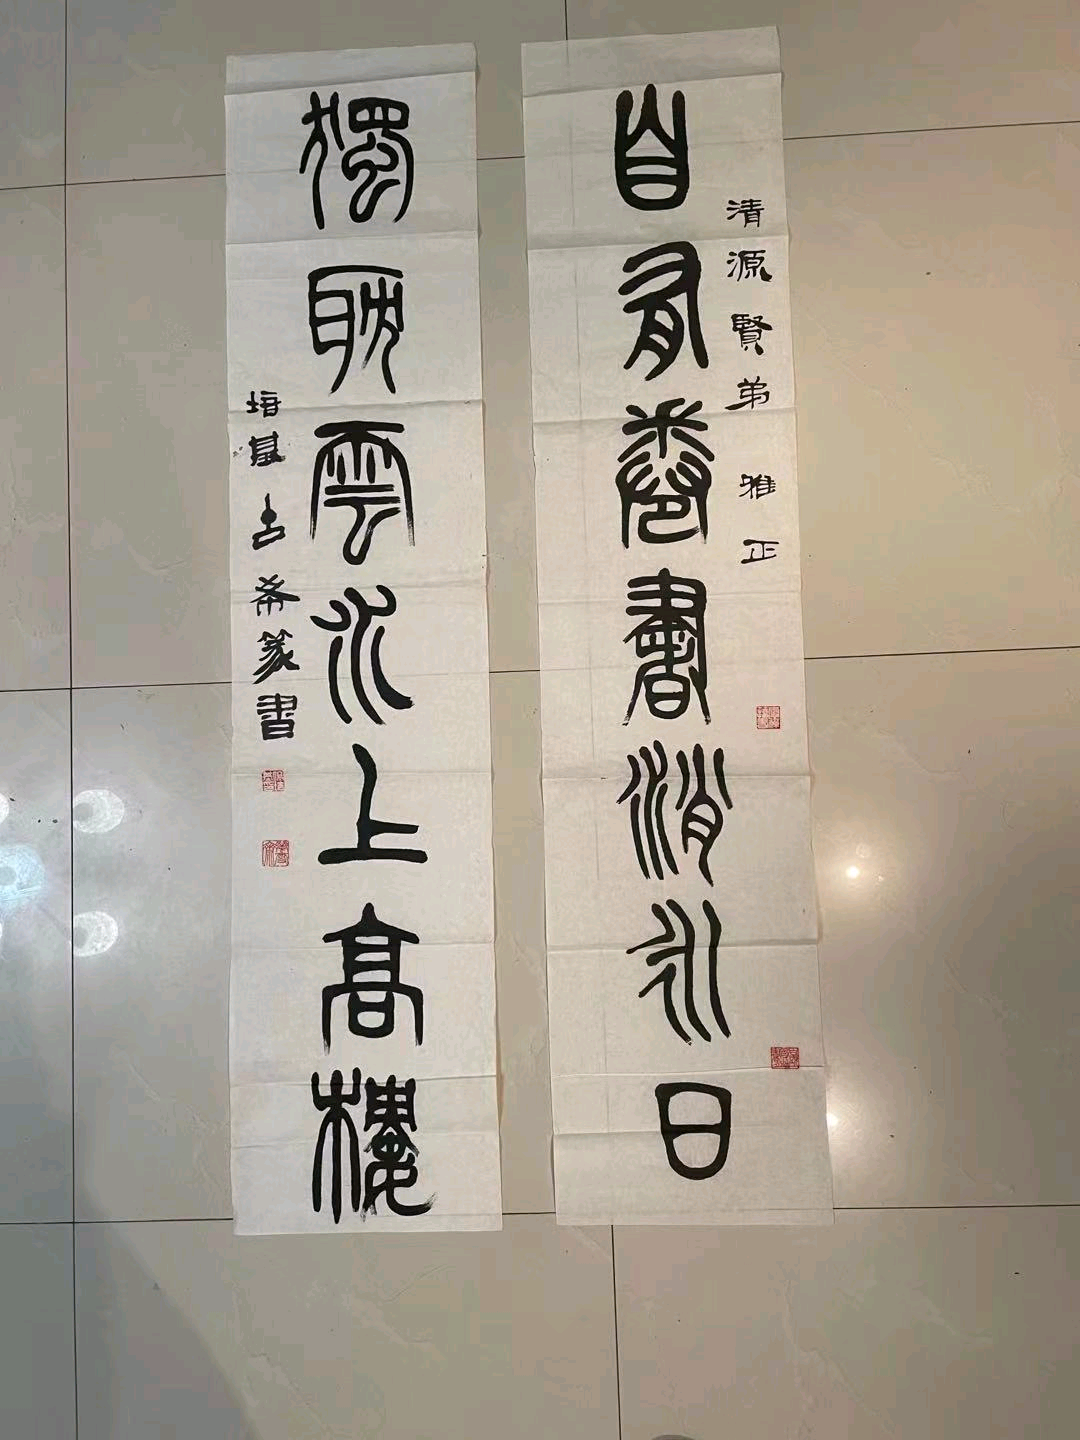 自有卷書消永日
清源賢弟 雅正
獨耽雲水上高樓
培基古希篆書